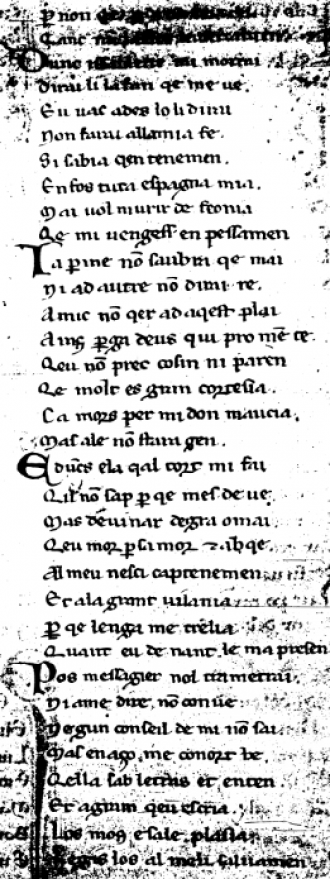 P non
Canc
Donc mi morrai
Dirai li lafan qe me ue.
Eu uas ades lo li dirai
Non farai alla mia fe.
Si sabia qen tenemen.
En fos tuta espagna mia.
Mai uol murir de feonia
Qe mi uenges en pessamen
Ia p me nō saubra qe mai
Ni ad autre nō dirai re.
Amic nō qer ad aqest plai
Ainz pga deus qui pro mē te.
Qeu nō prec cosin ni paren
Qe molt es gran cortesia.
Ca mors per midon maucia.
Mas ale nō stara gen.
E dūcs ela qal tort mi fai
Qil nō sap p qe mes de ue
Mas deuinar degra omai
Qeu mor p sa mor 7 abqe
Al meu nesci captenemen
Et ala grant uilania
P qe lenga me trelia
Quant eu denant le ma presen
Pos messagier nol trametrai
Ni ame dire nō conue
Negun conseil de mi nō sai
Mas en aço me conort be
Qella sab letras et enten.
Et agram qeu escria
Los moz e sale plasia
Legis los al meu saluamen